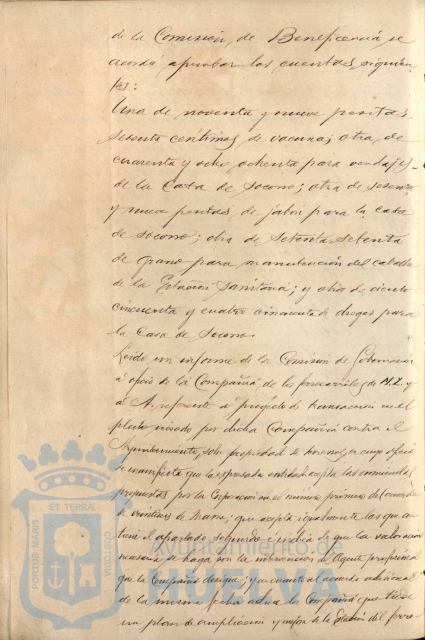 de la Comisión de Beneficencia, se
acordó aprobar las cuentas siguien
tes:
Una de noventa y nueve pesetas
setenta centimos de vacunas; otra, de
cuarenta y ocho ochenta para vendajes
de la Casa de Socorro; otra de sesenta
y nueve pesetas, de jabón para la casa
de socorro; otra de setenta setenta
de grano para manutención del caballo
de la Estación Sanitaria; y otra de ciento
cincuenta y cuatro cincuenta de drogas para
la Casa de Socorro.
Leido un informe de la Comision de Gobernacion
á oficio de la Compañía de los ferrocarriles de M. Z. y
á A. referente á proyecto de transaccion en el
pleito iniciado por dicha Compañía contra el
Ayuntamiento, sobre propiedad de terrenos, en cuyo oficio
se manifiesta que la expresada entidad acepta las enmiendas
propuestas por la Corporacion en el numero primero del acuerdo
de veintiseis de Marzo; que acepta igualmente las que con
tiene el apartado segundo é indica de que la valoracion
necesaria se haga con la intervencion de Agente profesional
que la Compañía designe; y en cuanto al acuerdo adicional
de la misma fecha la Compañía que tiene
un plan de ampliacion y mejora de la Estación del ferro-
PORTUS MARIS ET TERRÆ CUSTODIA
Ayuntamiento de
HUELVA